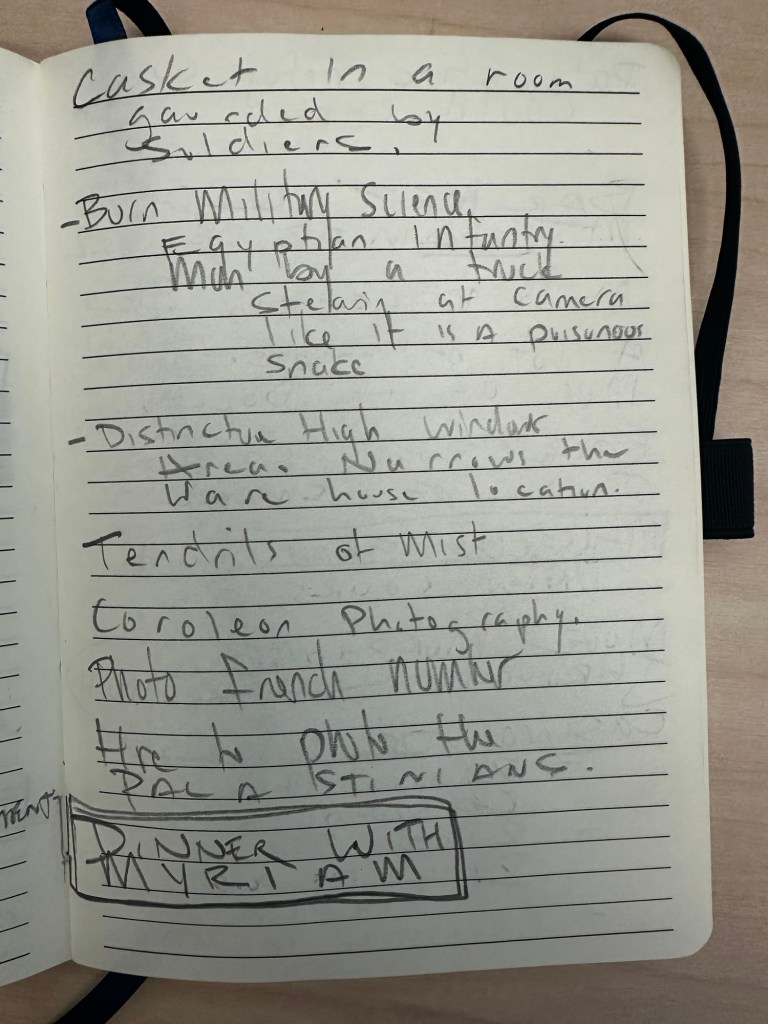 Casket in a room
gaurded by
Soldiers.
- Burn Military Science,
Egyptian Infantry.
Man by a truck
Stelaring at camera
like it is A poisunous
Snake
- Distinctive High windows
Area. Narrows the
Warehouse location.
Tendrils of Mist
Coroleon Photography.
Photo French number
Hire to photo the
PALASTINIANS.
DINNER WITH
MYRIAM